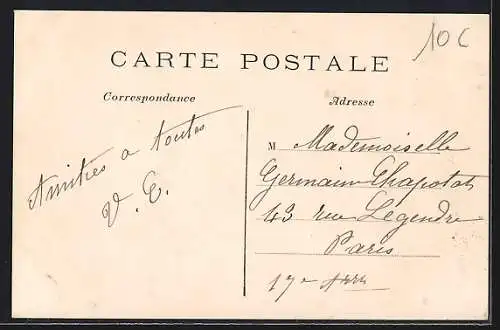 10 C
CARTE POSTALE
Correspondance
Adresse
Amitiés a toutes
V. E.
M Mademoiselle
Germaine Chapotat
43 rue Legendre
Paris
17e Arr